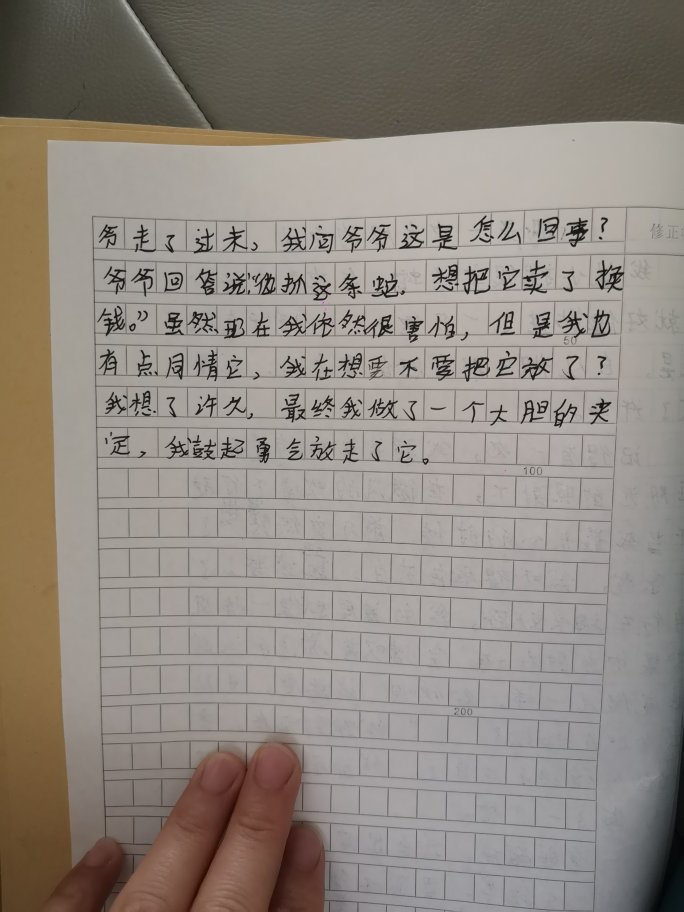 爷走了过来，我问爷爷这是怎么回事？
修正
爷爷回答说：“他抓这条蛇，想把它卖了换
钱。”虽然现在我依然很害怕，但是我也
50
有点同情它，我在想要不要把它放了？
我想了许久，最终我做了一个大胆的决
定，我鼓起勇气放走了它。
100
200